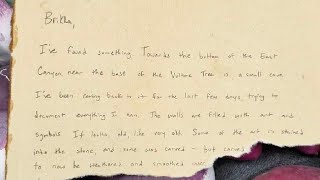 Brikha,
I've found something. Towards the bottom of the East
Canyon near the base of the Volume Tree is a small cave
I've been coming back to it for the last few days, trying to
document everything I can. The walls are filled with art and
symbols. It looks old, like very old. Some of the art is stained
into the stone, and some was carved - but carved
to now be weathered and smoothed over